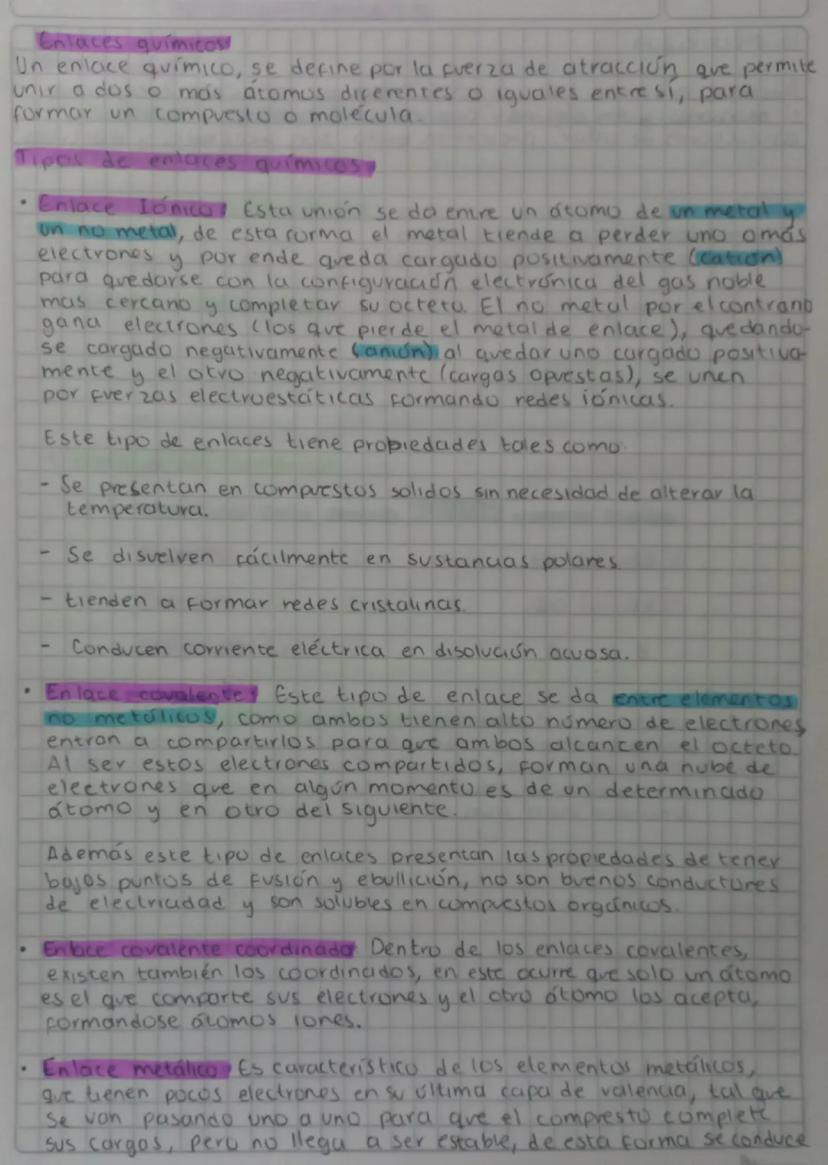 Enlaces químicos
Un enlace químico, se define por la fuerza de atracción que permite
unir a dos o más átomos diferentes o iguales entre sí, para
formar un compuesto o molécula.
Tipos de enlaces químicos
• Enlace Iónico: Esta unión se da entre un átomo de un metal y
un no metal, de esta forma el metal tiende a perder uno o más
electrones y por ende queda cargado positivamente (catión)
para quedarse con la configuración electrónica del gas noble
mas cercano y completar su octeto. El no metal por el contrario
gana electrones (los que pierde el metal de enlace), quedando-
se cargado negativamente (anión) al quedar uno cargado positiva-
mente y el otro negativamente (cargas opuestas), se unen
por fuerzas electroestáticas formando redes iónicas.
Este tipo de enlaces tiene propiedades tales como:
- Se presentan en compuestos solidos sin necesidad de alterar la
temperatura.
- Se disuelven fácilmente en sustancias polares
- tienden a formar redes cristalinas.
- Conducen corriente eléctrica en disolución acuosa.
• Enlace covalente: Este tipo de enlace se da entre elementos
no metálicos, como ambos tienen alto número de electrones,
entran a compartirlos para que ambos alcancen el octeto.
Al ser estos electrones compartidos, forman una nube de
electrones que en algún momento es de un determinado
átomo y en otro del siguiente.
Además este tipo de enlaces presentan las propiedades de tener
bajos puntos de fusión y ebullición, no son buenos conductores
de electricidad y son solubles en compuestos orgánicos.
• Enlace covalente coordinado: Dentro de los enlaces covalentes,
existen también los coordinados, en este ocurre que solo un átomo
es el que comparte sus electrones y el otro átomo los acepta,
formandose átomos iones.
• Enlace metálico: Es característico de los elementos metálicos,
que tienen pocos electrones en su última capa de valencia, tal que
se van pasando uno a uno para que el compuesto complete
sus cargas, pero no llega a ser estable, de esta forma se conduce